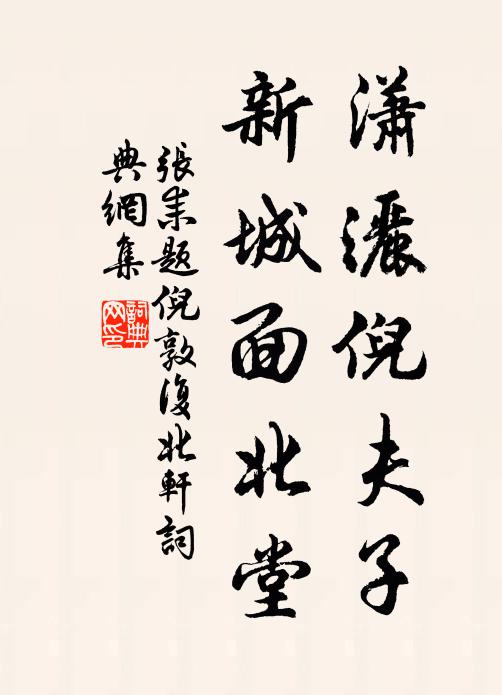 瀟灑倪夫子
新城面北堂
張耒題倪敦復北軒詞
典網集
詞典網印